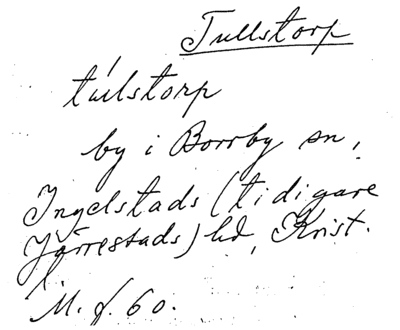 Tullstorp
túlstorp
by i Borrby sn,
Ingelstads (tidigare
Järrestads) hd, Krist.
l.
M. f. 60.